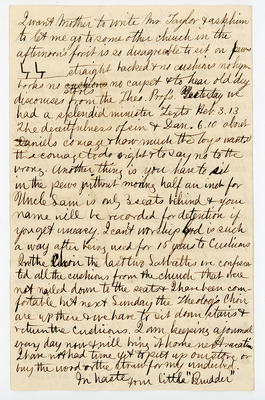 I want Mother to write Mr. Taylor & ask him
to let me go to some other church in the
afternoons for it is so disagreeable to sit on pews
straight backed & no cushions no hym
books no cushions no carpet & to hear old dry
stools
discouses from the Theo. Prof's. Yesterday we
had a splended minister Texts Heb 3.13
The deceitfulness of sin & Dan. 6.10 about
Daniels courage & how much the boys wants
the courage to do right & to say no to the
wrong. Another thing is you have to sit
in the pews without moving half an inch for
Uncle Sam is only 3 seats behind & your
name will be recorded for detention if
you get uneasy. I can't worship God is such
a way after being used for 15 years to Cushions
In the Choir the last two Sabbaths we confisca
ted all the cushions from the church that were
not nailed down to the seats & I have been com-
fortable but next Sunday the Theolog's Choir
are up there & we have to sit down stairs &
return the Cushions. I am keeping a journal
every day now & will bring it home next vacation
I have not had time yet to put up our stove or
buy the wood or the straw for my underbed.
In haste your little "Brudder"